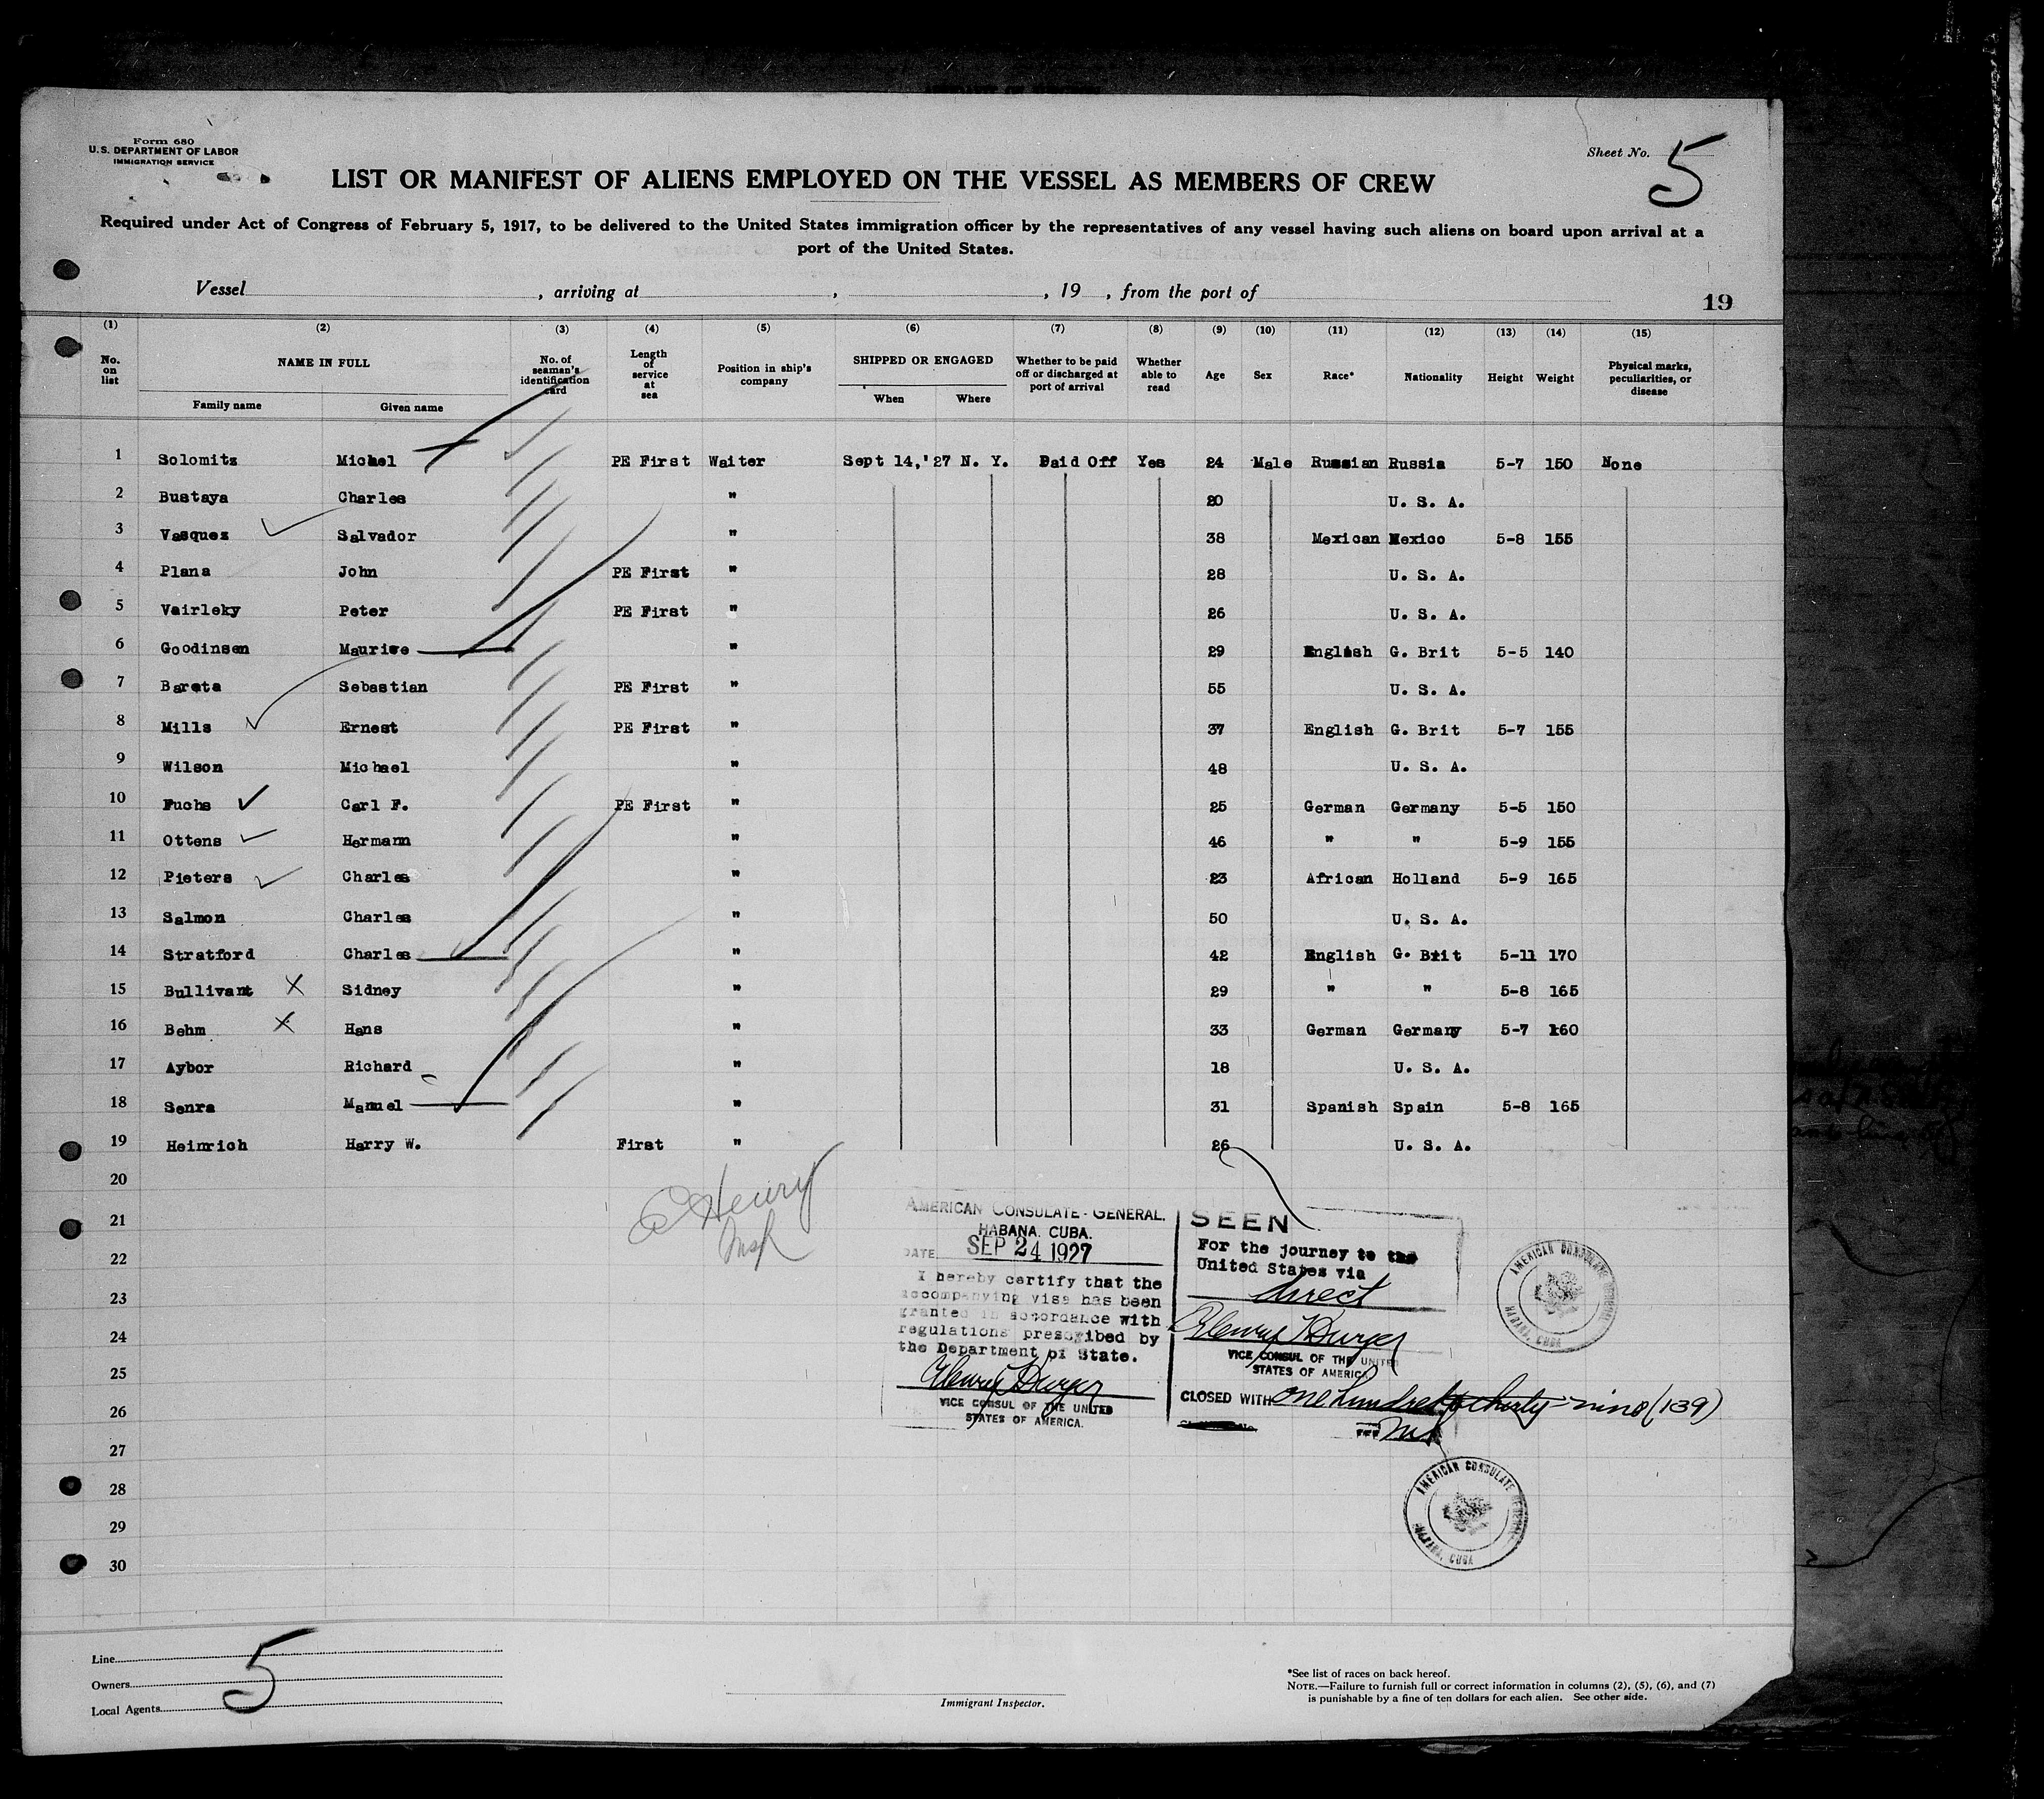 Form 680
U. S. DEPARTMENT OF LABOR
IMMIGRATION SERVICE
Sheet No. 5
LIST OR MANIFEST OF ALIENS EMPLOYED ON THE VESSEL AS MEMBERS OF CREW
Required under Act of Congress of February 5, 1917, to be delivered to the United States immigration officer by the representatives of any vessel having such aliens on board upon arrival at a
port of the United States.
Vessel , arriving at , , 19 , from the port of
19
(1) (2) (3) (4) (5) (6) (7) (8) (9) (10) (11) (12) (13) (14) (15)
No. on list NAME IN FULL Family name Given name No. of seaman's identification card Length of service at sea Position in ship's company SHIPPED OR ENGAGED When Where Whether to be paid off or discharged at port of arrival Whether able to read Age Sex Race* Nationality Height Weight Physical marks, peculiarities, or disease
1 Solomitz Michel PE First Waiter Sept 14,'27 N. Y. Paid Off Yes 24 Male Russian Russia 5-7 150 None
2 Bustaya Charles " 20 U. S. A.
3 Vasquez Salvador " 38 Mexican Mexico 5-8 155
4 Plana John PE First " 28 U. S. A.
5 Vairleky Peter PE First " 26 U. S. A.
6 Goodinsen Maurice " 29 English G. Brit 5-5 140
7 Bareta Sebastian PE First " 55 U. S. A.
8 Mills Ernest PE First " 37 English G. Brit 5-7 155
9 Wilson Michael " 48 U. S. A.
10 Fuchs Carl F. PE First " 25 German Germany 5-5 150
11 Ottens Hermann " 46 " " 5-9 155
12 Pieters Charles " 23 African Holland 5-9 165
13 Salmon Charles " 50 U. S. A.
14 Stratford Charles " 42 English G. Brit 5-11 170
15 Bullivant Sidney " 29 " " 5-8 165
16 Behm Hans " 33 German Germany 5-7 160
17 Aybor Richard " 18 U. S. A.
18 Senra Manuel " 31 Spanish Spain 5-8 165
19 Heinrich Harry W. First " 26 U. S. A.
20
21
22
23
24
25
26
27
28
29
30
Henry
AMERICAN CONSULATE-GENERAL,
HABANA, CUBA.
DATE SEP 24 1927
I hereby certify that the
accompanying visa has been
granted in accordance with
regulations prescribed by
the Department of State.
VICE CONSUL OF THE UNITED
STATES OF AMERICA.
SEEN
For the journey to the
United States via
direct
VICE CONSUL OF THE UNITED
STATES OF AMERICA
CLOSED WITH one hundred & thirty-nine (139)
AMERICAN CONSULATE GENERAL
HABANA, CUBA
AMERICAN CONSULATE GENERAL
HABANA, CUBA
Line
Owners
Local Agents
5
Immigrant Inspector.
*See list of races on back hereof.
NOTE.—Failure to furnish full or correct information in columns (2), (5), (6), and (7)
is punishable by a fine of ten dollars for each alien. See other side.